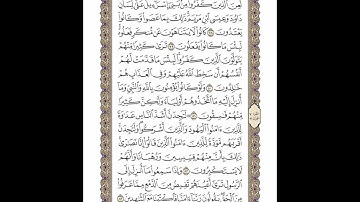 لُعِنَ ٱلَّذِينَ كَفَرُوا۟ مِنۢ بَنِىٓ إِسْرَٰٓءِيلَ عَلَىٰ لِسَانِ
دَاوُۥدَ وَعِيسَى ٱبْنِ مَرْيَمَ ۚ ذَٰلِكَ بِمَا عَصَوا۟ وَّكَانُوا۟
يَعْتَدُونَ ٧٨ كَانُوا۟ لَا يَتَنَاهَوْنَ عَن مُّنكَرٍ فَعَلُوهُ ۚ
لَبِئْسَ مَا كَانُوا۟ يَفْعَلُونَ ٧٩ تَرَىٰ كَثِيرًا مِّنْهُمْ
يَتَوَلَّوْنَ ٱلَّذِينَ كَفَرُوا۟ ۚ لَبِئْسَ مَا قَدَّمَتْ لَهُمْ
أَنفُسُهُمْ أَن سَخِطَ ٱللَّهُ عَلَيْهِمْ وَفِى ٱلْعَذَابِ هُمْ
خَٰلِدُونَ ٨٠ وَلَوْ كَانُوا۟ يُؤْمِنُونَ بِٱللَّهِ وَٱلنَّبِىِّ وَمَآ
أُنزِلَ إِلَيْهِ مَا ٱتَّخَذُوهُمْ أَوْلِيَآءَ وَلَٰكِنَّ كَثِيرًا
مِّنْهُمْ فَٰسِقُونَ ٨١ لَتَجِدَنَّ أَشَدَّ ٱلنَّاسِ عَدَٰوَةً
لِّلَّذِينَ ءَامَنُوا۟ ٱلْيَهُودَ وَٱلَّذِينَ أَشْرَكُوا۟ ۖ وَلَتَجِدَنَّ
أَقْرَبَهُم مَّوَدَّةً لِّلَّذِينَ ءَامَنُوا۟ ٱلَّذِينَ قَالُوٓا۟ إِنَّا نَصَٰرَىٰ ۚ
ذَٰلِكَ بِأَنَّ مِنْهُمْ قِسِّيسِينَ وَرُهْبَانًا وَأَنَّهُمْ
لَا يَسْتَكْبِرُونَ ٨٢ وَإِذَا سَمِعُوا۟ مَآ أُنزِلَ إِلَى
ٱلرَّسُولِ تَرَىٰٓ أَعْيُنَهُمْ تَفِيضُ مِنَ ٱلدَّمْعِ مِمَّا عَرَفُوا۟
مِنَ ٱلْحَقِّ ۖ يَقُولُونَ رَبَّنَآ ءَامَنَّا فَٱكْتُبْنَا مَعَ ٱلشَّٰهِدِينَ ٨٣